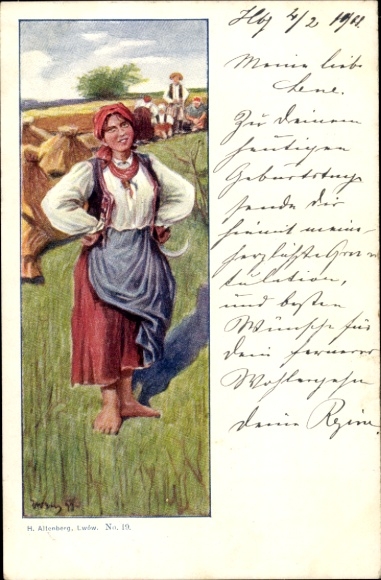 Hbg 4/2 1901.
Meine liebe
Lene.
Zu Deinem
heutigen
Geburtstage
sende Dir
hiermit meine
herzlichste Gra
tulation,
und besten
Wünsche für
Dein ferneres
Wohlergehn
Deine Regine.
H. Altenberg, Lwów. No. 19.